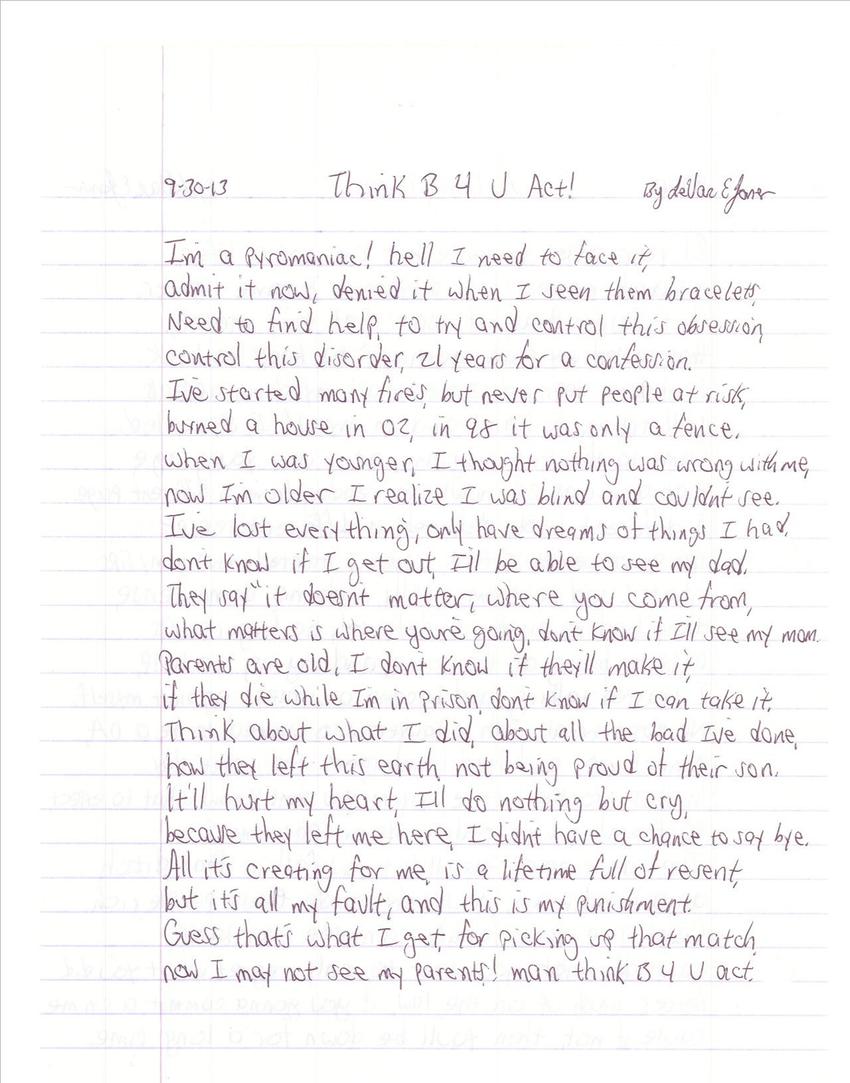 9-30-13 Think B 4 U Act! By deVae E Jones
Im a pyromaniac! hell I need to face it,
admit it now, denied it when I seen them bracelets,
Need to find help, to try and control this obsession,
control this disorder, 21 years for a confession.
I've started many fires, but never put people at risk,
burned a house in 02, in 98 it was only a fence.
When I was younger, I thought nothing was wrong with me,
now I'm older I realize I was blind and couldn't see.
I've lost everything, only have dreams of things I had,
don't know if I get out, I'll be able to see my dad.
They say "it doesn't matter, where you come from,
what matters is where you're going, don't know if I'll see my mom.
Parents are old, I don't know if they'll make it,
if they die while I'm in prison, don't know if I can take it,
Think about what I did, about all the bad I've done,
how they left this earth, not being proud of their son.
It'll hurt my heart, I'll do nothing but cry,
because they left me here, I didn't have a chance to say bye.
All it's creating for me, is a lifetime full of resent,
but it's all my fault, and this is my punishment.
Guess that's what I get, for picking up that match,
now I may not see my parents! man think B 4 U act.